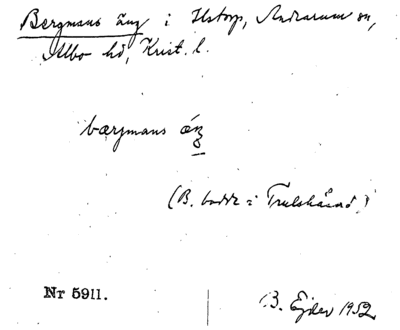 Bergmans äng i Illstorp, Andrarum sn,
Albo hd, Krist. l.
bærjmans áŋ
(B. bodde i Trulshärad)
Nr 5911.
B. Ejder 1952